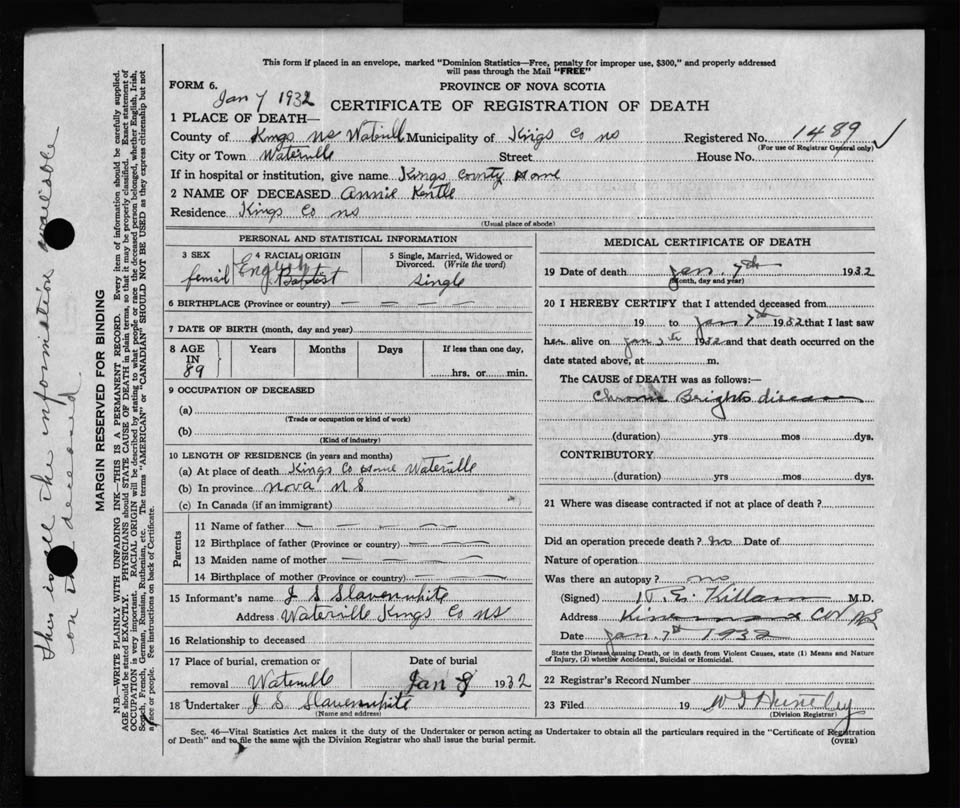 This form if placed in an envelope, marked "Dominion Statistics—Free, penalty for improper use, $300," and properly addressed
will pass through the Mail "FREE"
FORM 6.
PROVINCE OF NOVA SCOTIA
Jan 7 1932
CERTIFICATE OF REGISTRATION OF DEATH
1 PLACE OF DEATH—
County of Kings NS Municipality of Kings Co NS Registered No. 1489
(For use of Registrar General only)
City or Town Waterville Street House No.
If in hospital or institution, give name Kings County Home
2 NAME OF DECEASED Annie
Residence Kings Co NS
(Usual place of abode)
PERSONAL AND STATISTICAL INFORMATION
3 SEX 4 RACIAL ORIGIN 5 Single, Married, Widowed or
Divorced. (Write the word)
femail English Baptist single
6 BIRTHPLACE (Province or country)
7 DATE OF BIRTH (month, day and year)
8 AGE IN Years Months Days If less than one day,
89 hrs. or min.
9 OCCUPATION OF DECEASED
(a)
(Trade or occupation or kind of work)
(b)
(Kind of industry)
10 LENGTH OF RESIDENCE (in years and months)
(a) At place of death Kings Co Home Waterville
(b) In province Nova N S
(c) In Canada (if an immigrant)
Parents
11 Name of father
12 Birthplace of father (Province or country)
13 Maiden name of mother
14 Birthplace of mother (Province or country)
15 Informant's name J S Slavenwhite
Address Waterville Kings Co NS
16 Relationship to deceased
17 Place of burial, cremation or Date of burial
removal Waterville Jan 8 1932
18 Undertaker J S Slavenwhite
(Name and address)
MEDICAL CERTIFICATE OF DEATH
19 Date of death Jan. 7th 1932
(Month, day and year)
20 I HEREBY CERTIFY that I attended deceased from
19 to Jan 7th 1932 that I last saw
h alive on Jan 1932 and that death occurred on the
date stated above, at m.
The CAUSE of DEATH was as follows:—
Chronic Brights disease
(duration) yrs mos dys.
CONTRIBUTORY
(duration) yrs mos dys.
21 Where was disease contracted if not at place of death?
Did an operation precede death? no Date of
Nature of operation
Was there an autopsy? no
(Signed) Killam M.D.
Address NS
Date Jan. 7th 1932
State the Disease Causing Death, or in death from Violent Causes, state (1) Means and Nature
of Injury, (2) whether Accidental, Suicidal or Homicidal.
22 Registrar's Record Number
23 Filed 19 Huntley
(Division Registrar)
Sec. 46—Vital Statistics Act makes it the duty of the Undertaker or person acting as Undertaker to obtain all the particulars required in the "Certificate of Registration
of Death" and to file the same with the Division Registrar who shall issue the burial permit. (OVER)
MARGIN RESERVED FOR BINDING
N.B.—WRITE PLAINLY WITH UNFADING INK—THIS IS A PERMANENT RECORD. Every item of information should be carefully supplied.
AGE should be stated EXACTLY. PHYSICIANS should STATE CAUSE OF DEATH in plain terms, so that it may be properly classified. Exact statement of
OCCUPATION is very important. RACIAL ORIGIN will be described by stating to what people or race the deceased person belonged, whether English, Irish,
Scotch, French, German, Russian, Ruthenian, etc. The terms "AMERICAN" or "CANADIAN" SHOULD NOT BE USED as they express citizenship but not
a race or people. See instructions on back of Certificate.
this is all the infomation available
on the deceased